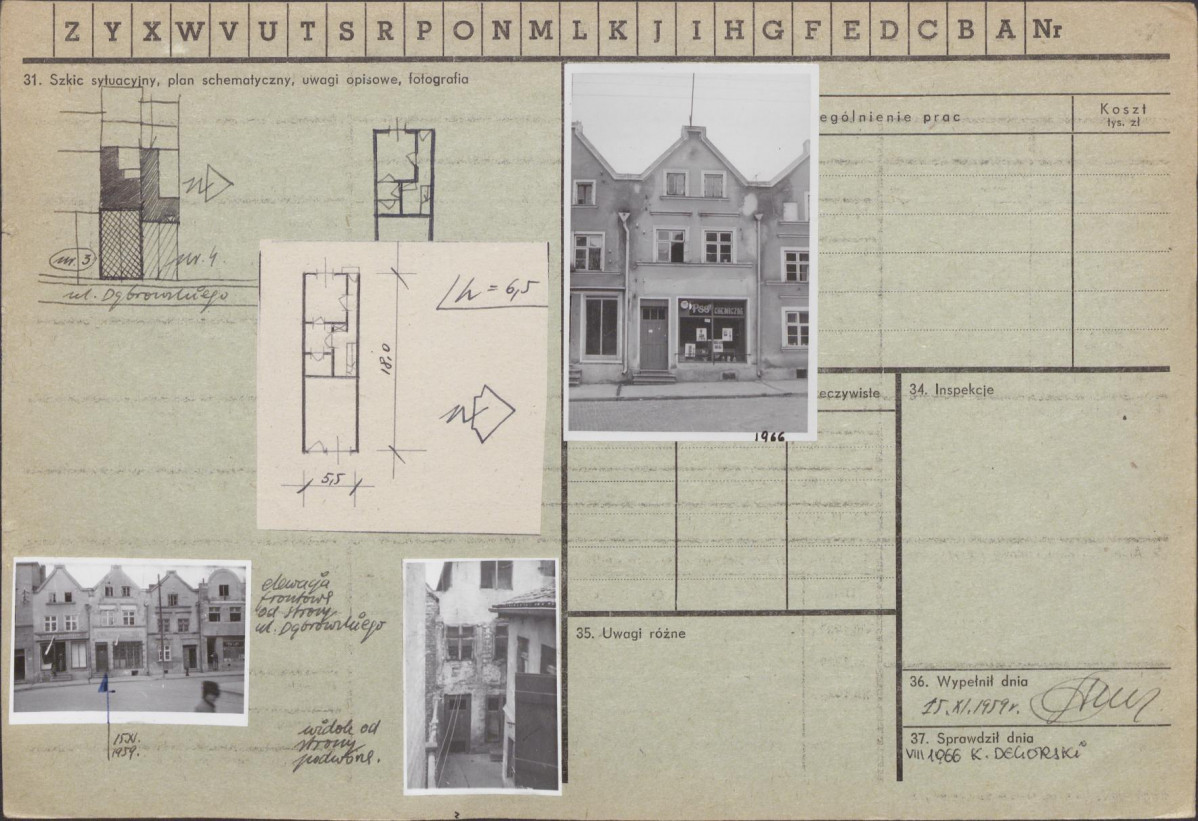 Z Y X W V U T S R P O N M L K J I H G F E D C B A Nr
31. Szkic sytuacyjny, plan schematyczny, uwagi opisowe, fotografia
nr. 3
nr. 4
ul. Dąbrowskiego
h = 6,5
18,0
5,5
elewacja
frontowa
od strony
ul. Dąbrowskiego
15.XI.
1959.
widok od
strony
podwórz.
1966
ególnienie prac
Koszt
tys. zł
eczywiste
34. Inspekcje
35. Uwagi różne
36. Wypełnił dnia
15.XI.1959r.
37. Sprawdził dnia
VIII 1966 K. DEGORSKI